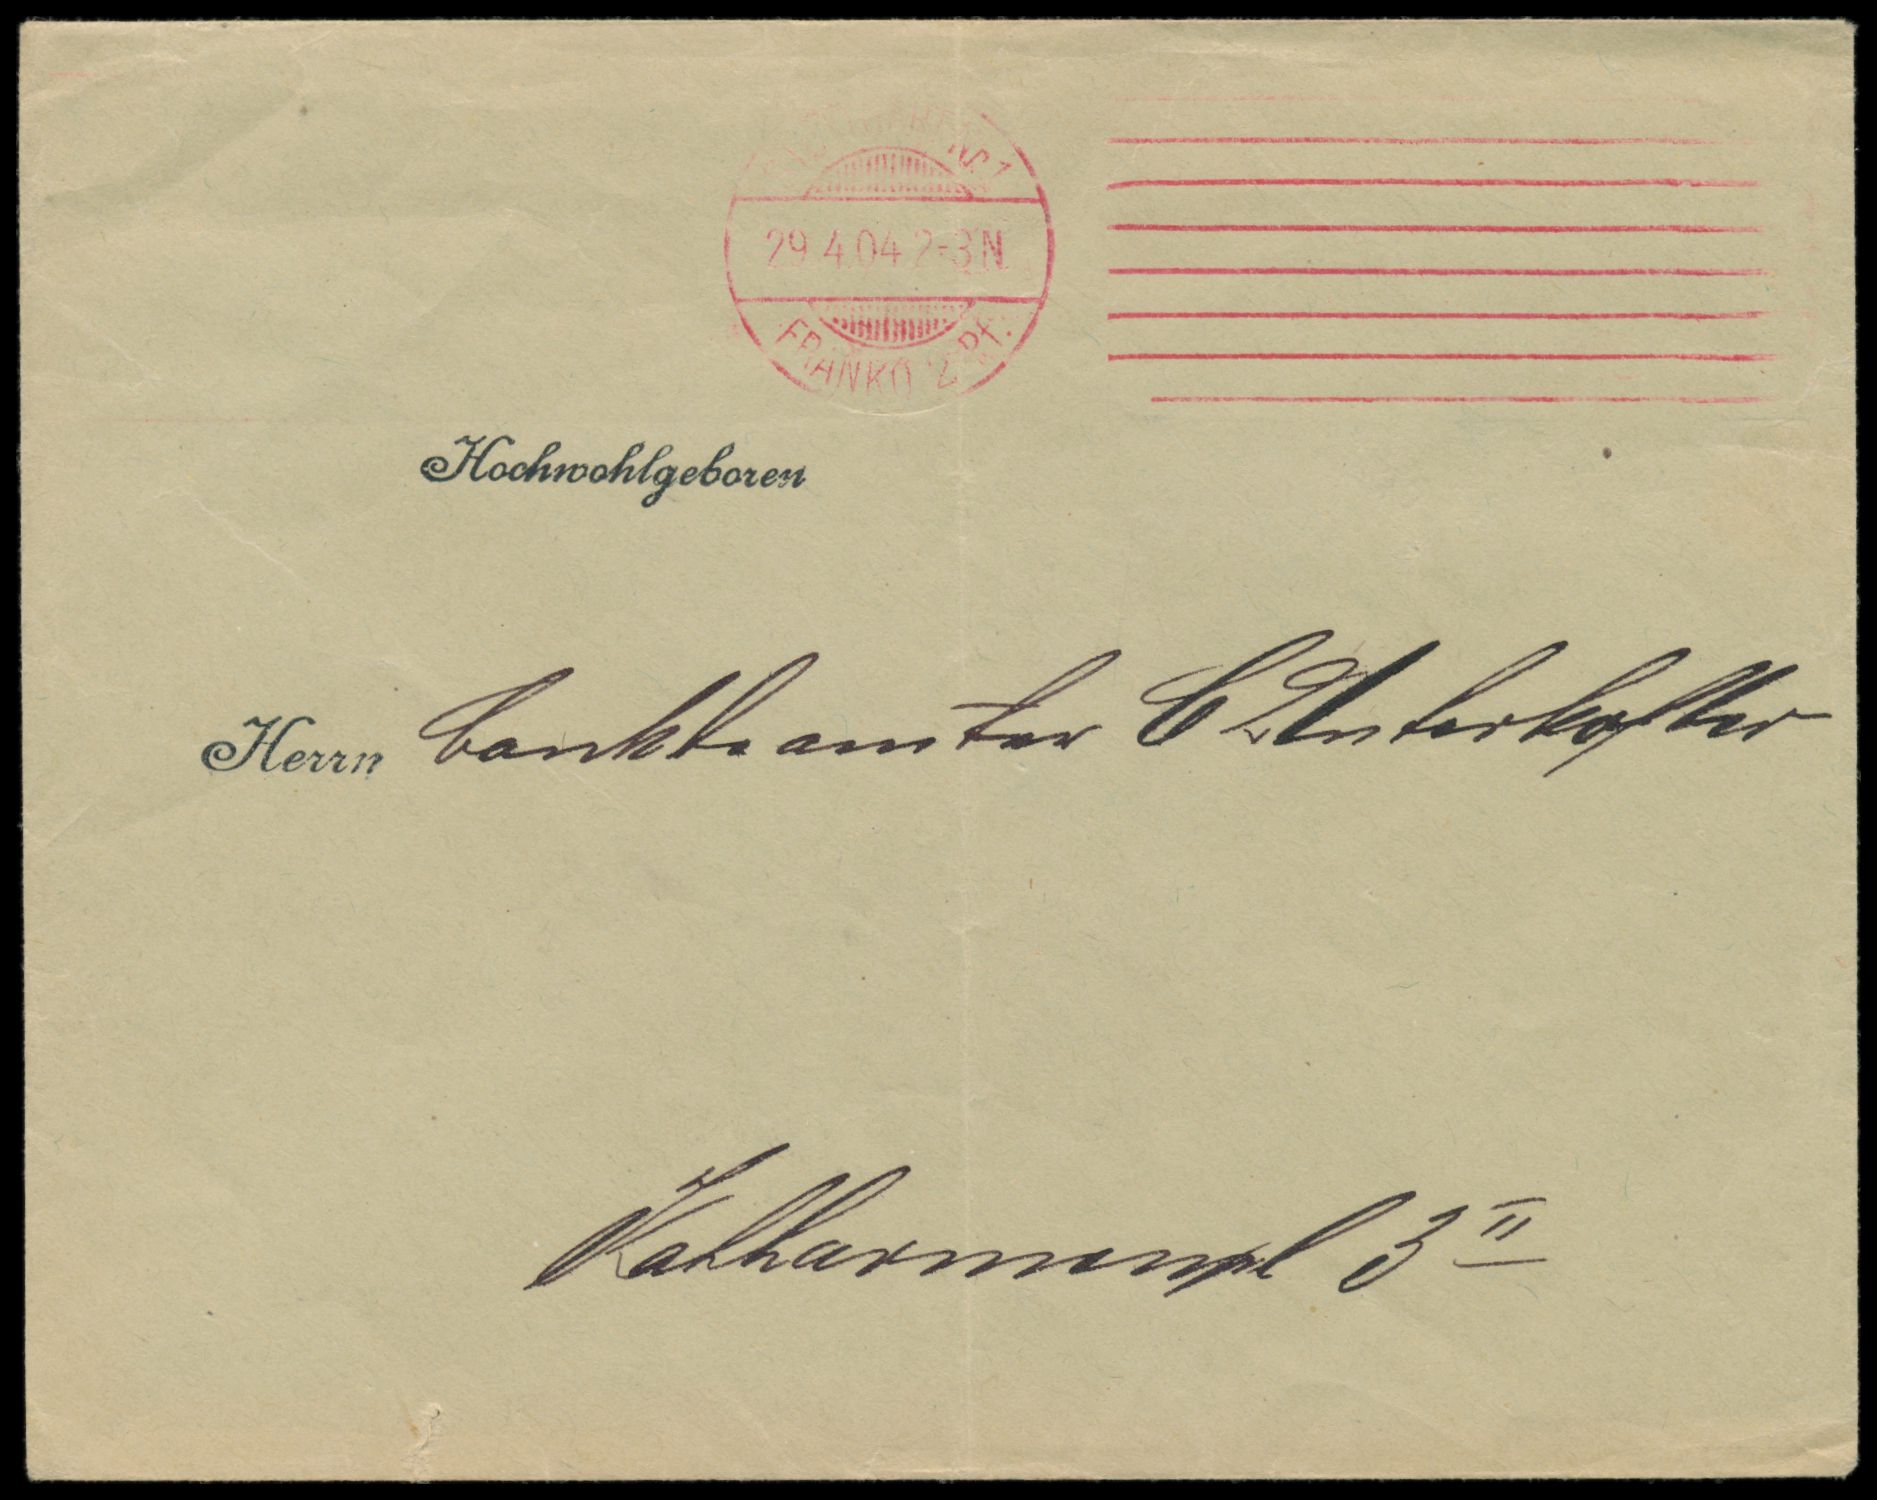 29.4.04 2-3 N.
FRANKO 2 Pf.
Hochwohlgeboren
Herrn bankbeamter C Unterkofler
3 II